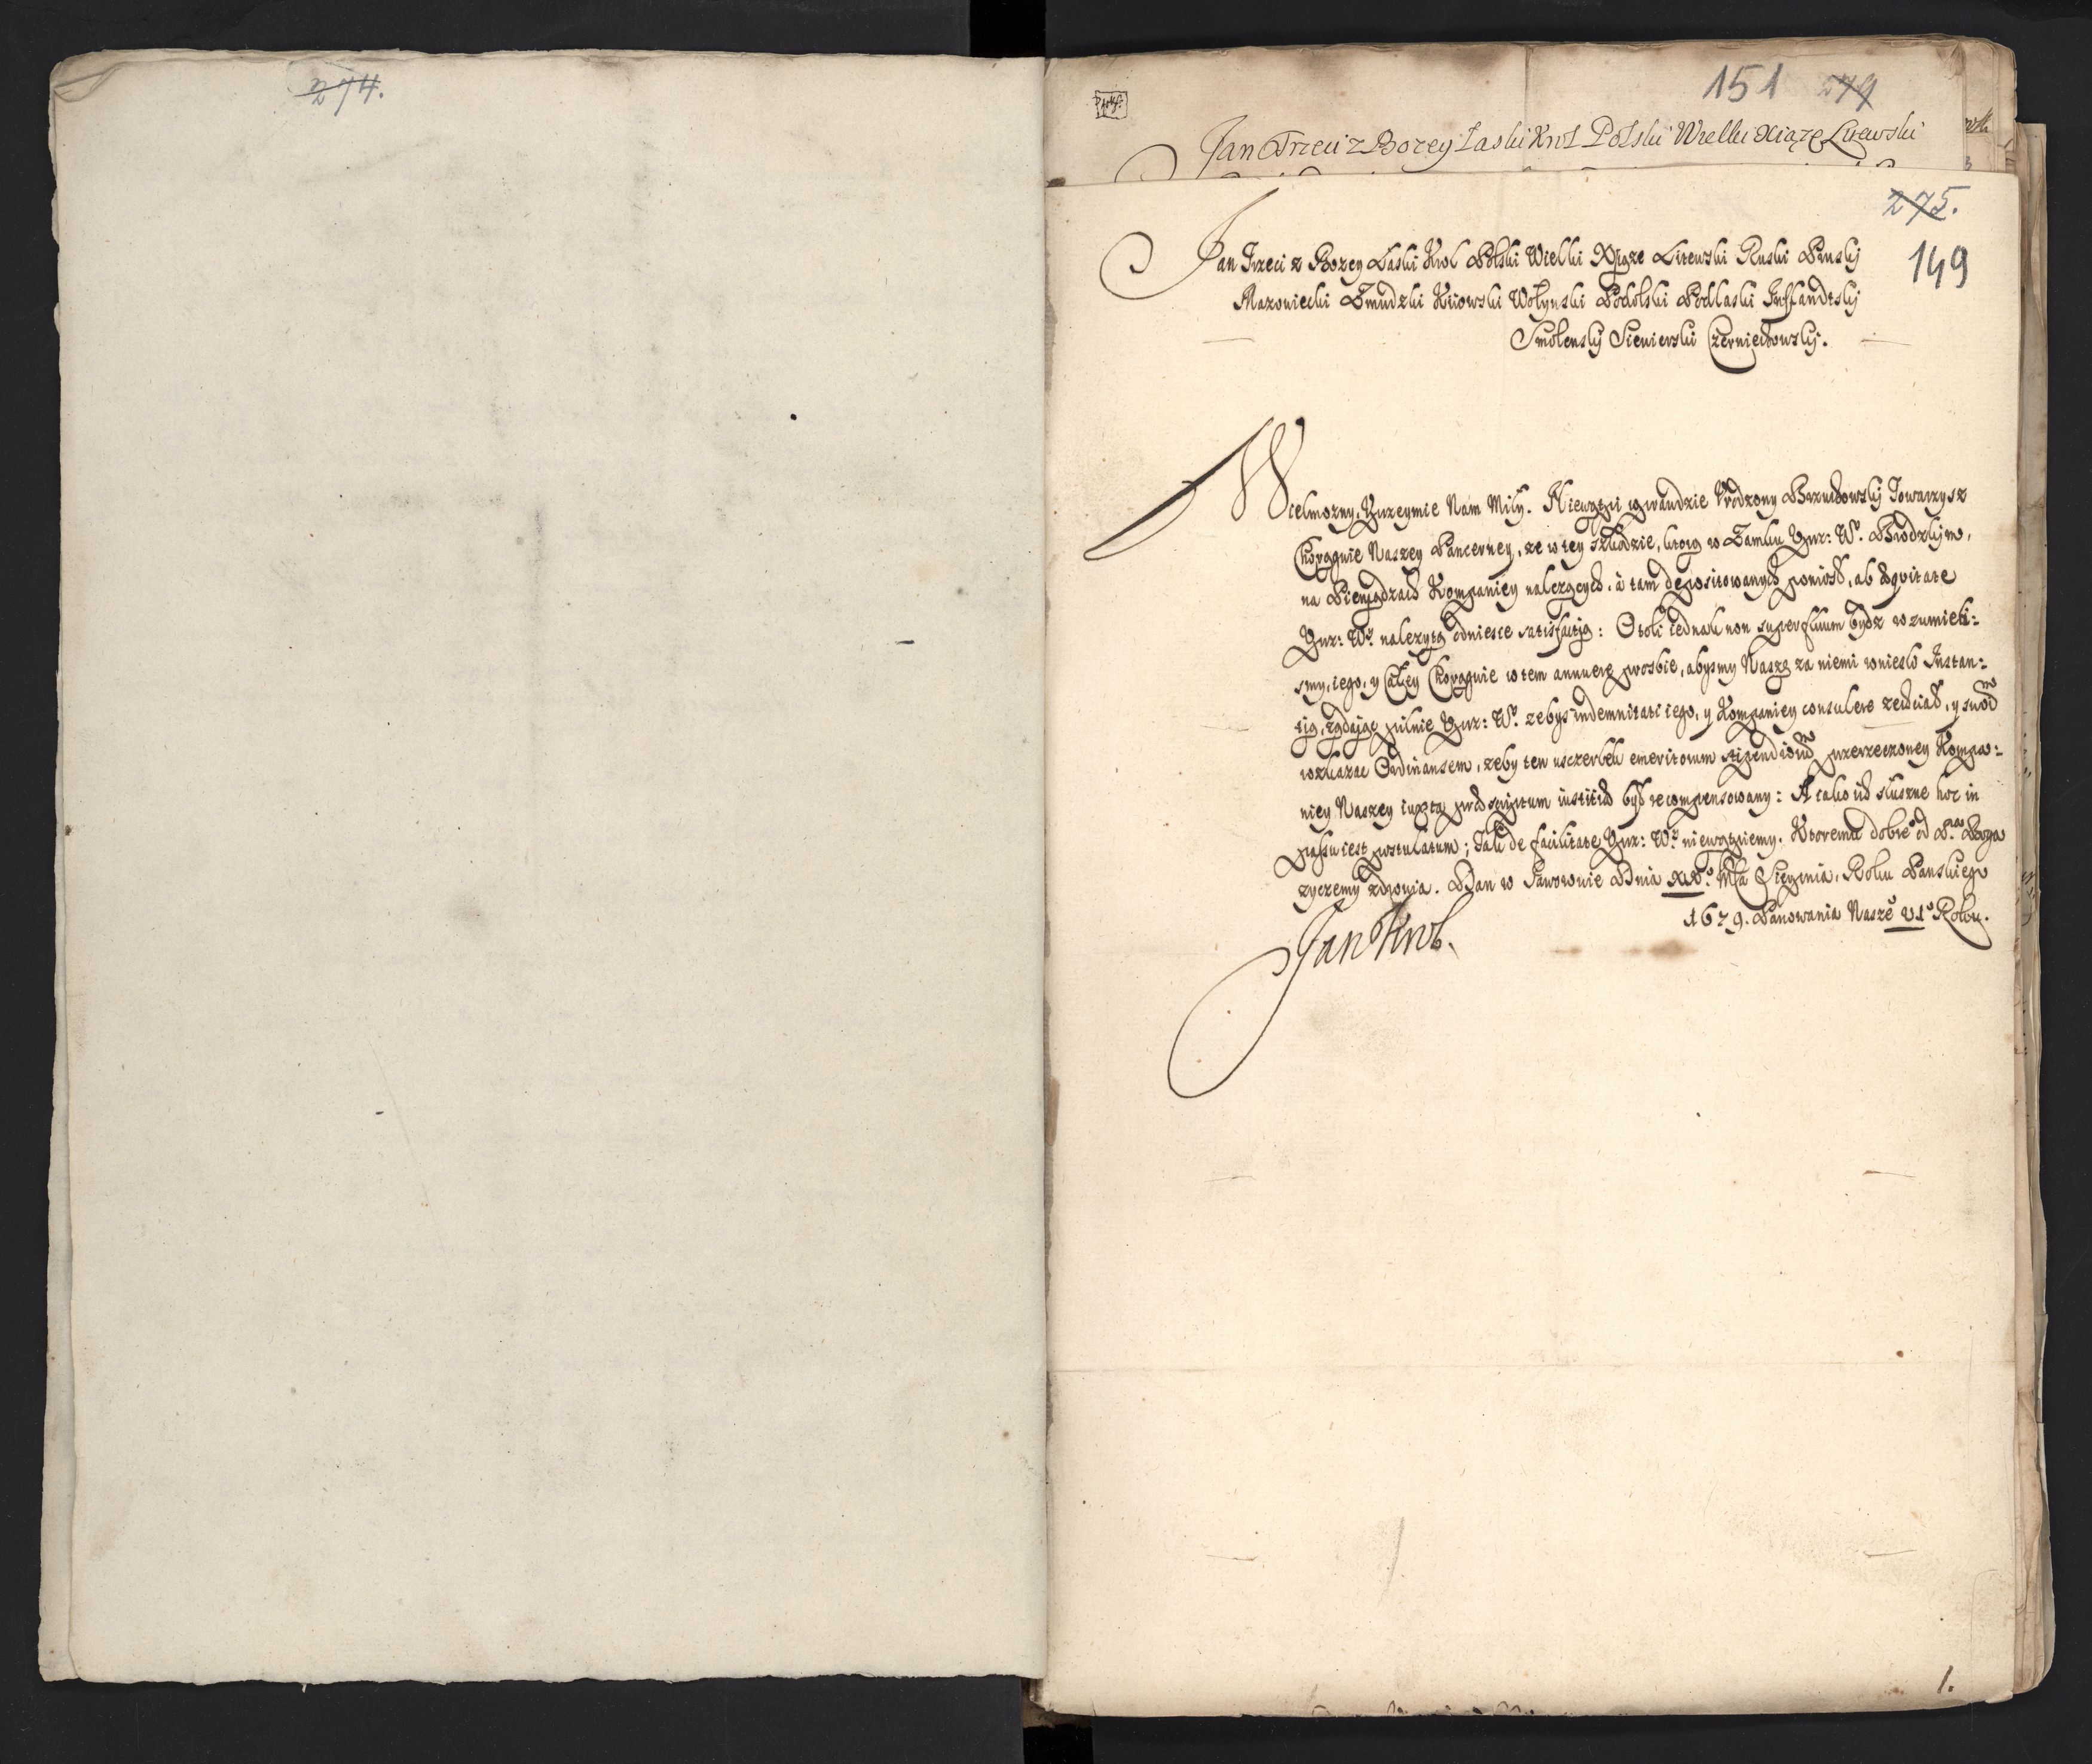 274.
151 279
Jan Trzeci z Bozey Łaski Krol Polski Wielki Xiąze Litewski
275.
149
Jan Trzeci z Bozey Łaski Krol Polski Wielki Xiąze Litewski Ruski Pruskj
Mazowiecki Zmudzki Kiiowski Wołynski Podolski Podlaski Infflandtskj
Smolenskj Siewierski Czerniechowskj.
Wielmozny, Uprzeymie Nam Miły. Niewątpi wprawdzie Urodzony Towarzysz
Chorągwie Naszey Pancerney, ze w tey szkodzie, ktorą w Zamku Uprz: W. Brodzkjm,
na Pieniądzach Kompaniey nalezących, a tam depositowanych poniosł, ab æqvitate
Uprz: W. nalezytą odniesie satisfactią: Otoli iednak non superfluum bydz rozumieli:
smy, iego, y Całey Chorągwie w tem annuere prosbie, abysmy Naszę za niemi wniesli Instan:
tią, ządaiąc pilnie Uprz: W. zebys indemnitati iego, y Kompaniey consulere zechciał, y swoim
rozkazac Ordinansem, zeby ten usczerbek emeritorum stipendiorum przerzeczoney Kompa:
niey Naszey iuxta præscriptum iustitiæ był recompensowany: A iako iest słuszne hoc in
passu iest postulatum; Tak de facilitate Uprz: W. niewątpiemy. Ktoremu dobrego od Pana Boga
zyczemy zdrowia. Dan w Jaworowie Dnia Mca Sierpnia, Roku Panskiego
1679. Panowania Naszego VI Roku.
Jan Krol.
1.